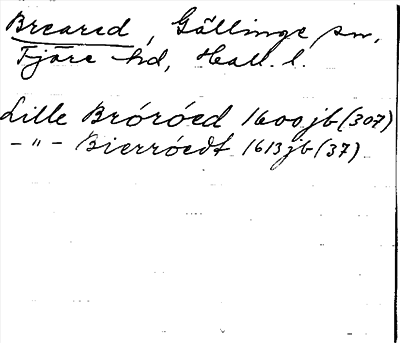 Breared, Gällinge sn,
Fjäre hd, Hall. l.
Lille Bróróed 1600 jb (307)
– " – Bierróedt 1613 jb (37)